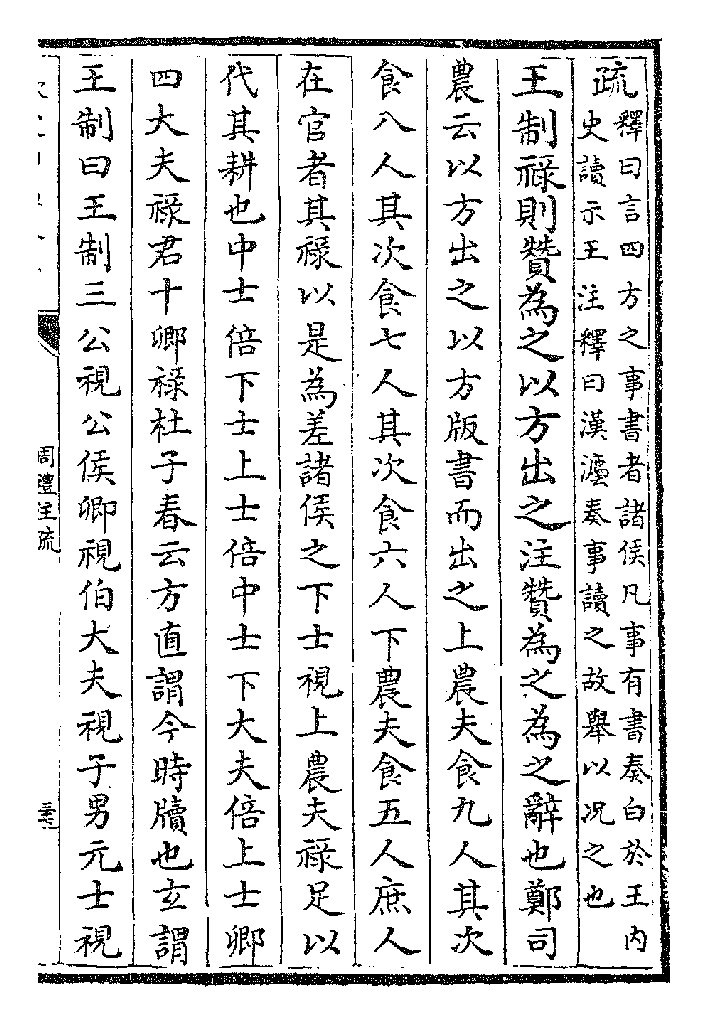 疏釋曰言四方之事書者諸侯凡事有書奏白於王内
史讀示王注釋曰漢灋奏事讀之故舉以况之也
王制禄則贊為之以方出之注贊為之為之辭也鄭司
農云以方出之以方版書而出之上農夫食九人其次
食八人其次食七人其次食六人下農夫食五人庶人
在官者其禄以是為差諸侯之下士視上農夫禄足以
代其耕也中士倍下士上士倍中士下大夫倍上士卿
四大夫禄君十卿禄杜子春云方直謂今時牘也玄謂
王制曰王制三公視公侯卿視伯大夫視子男元士視
周禮注疏